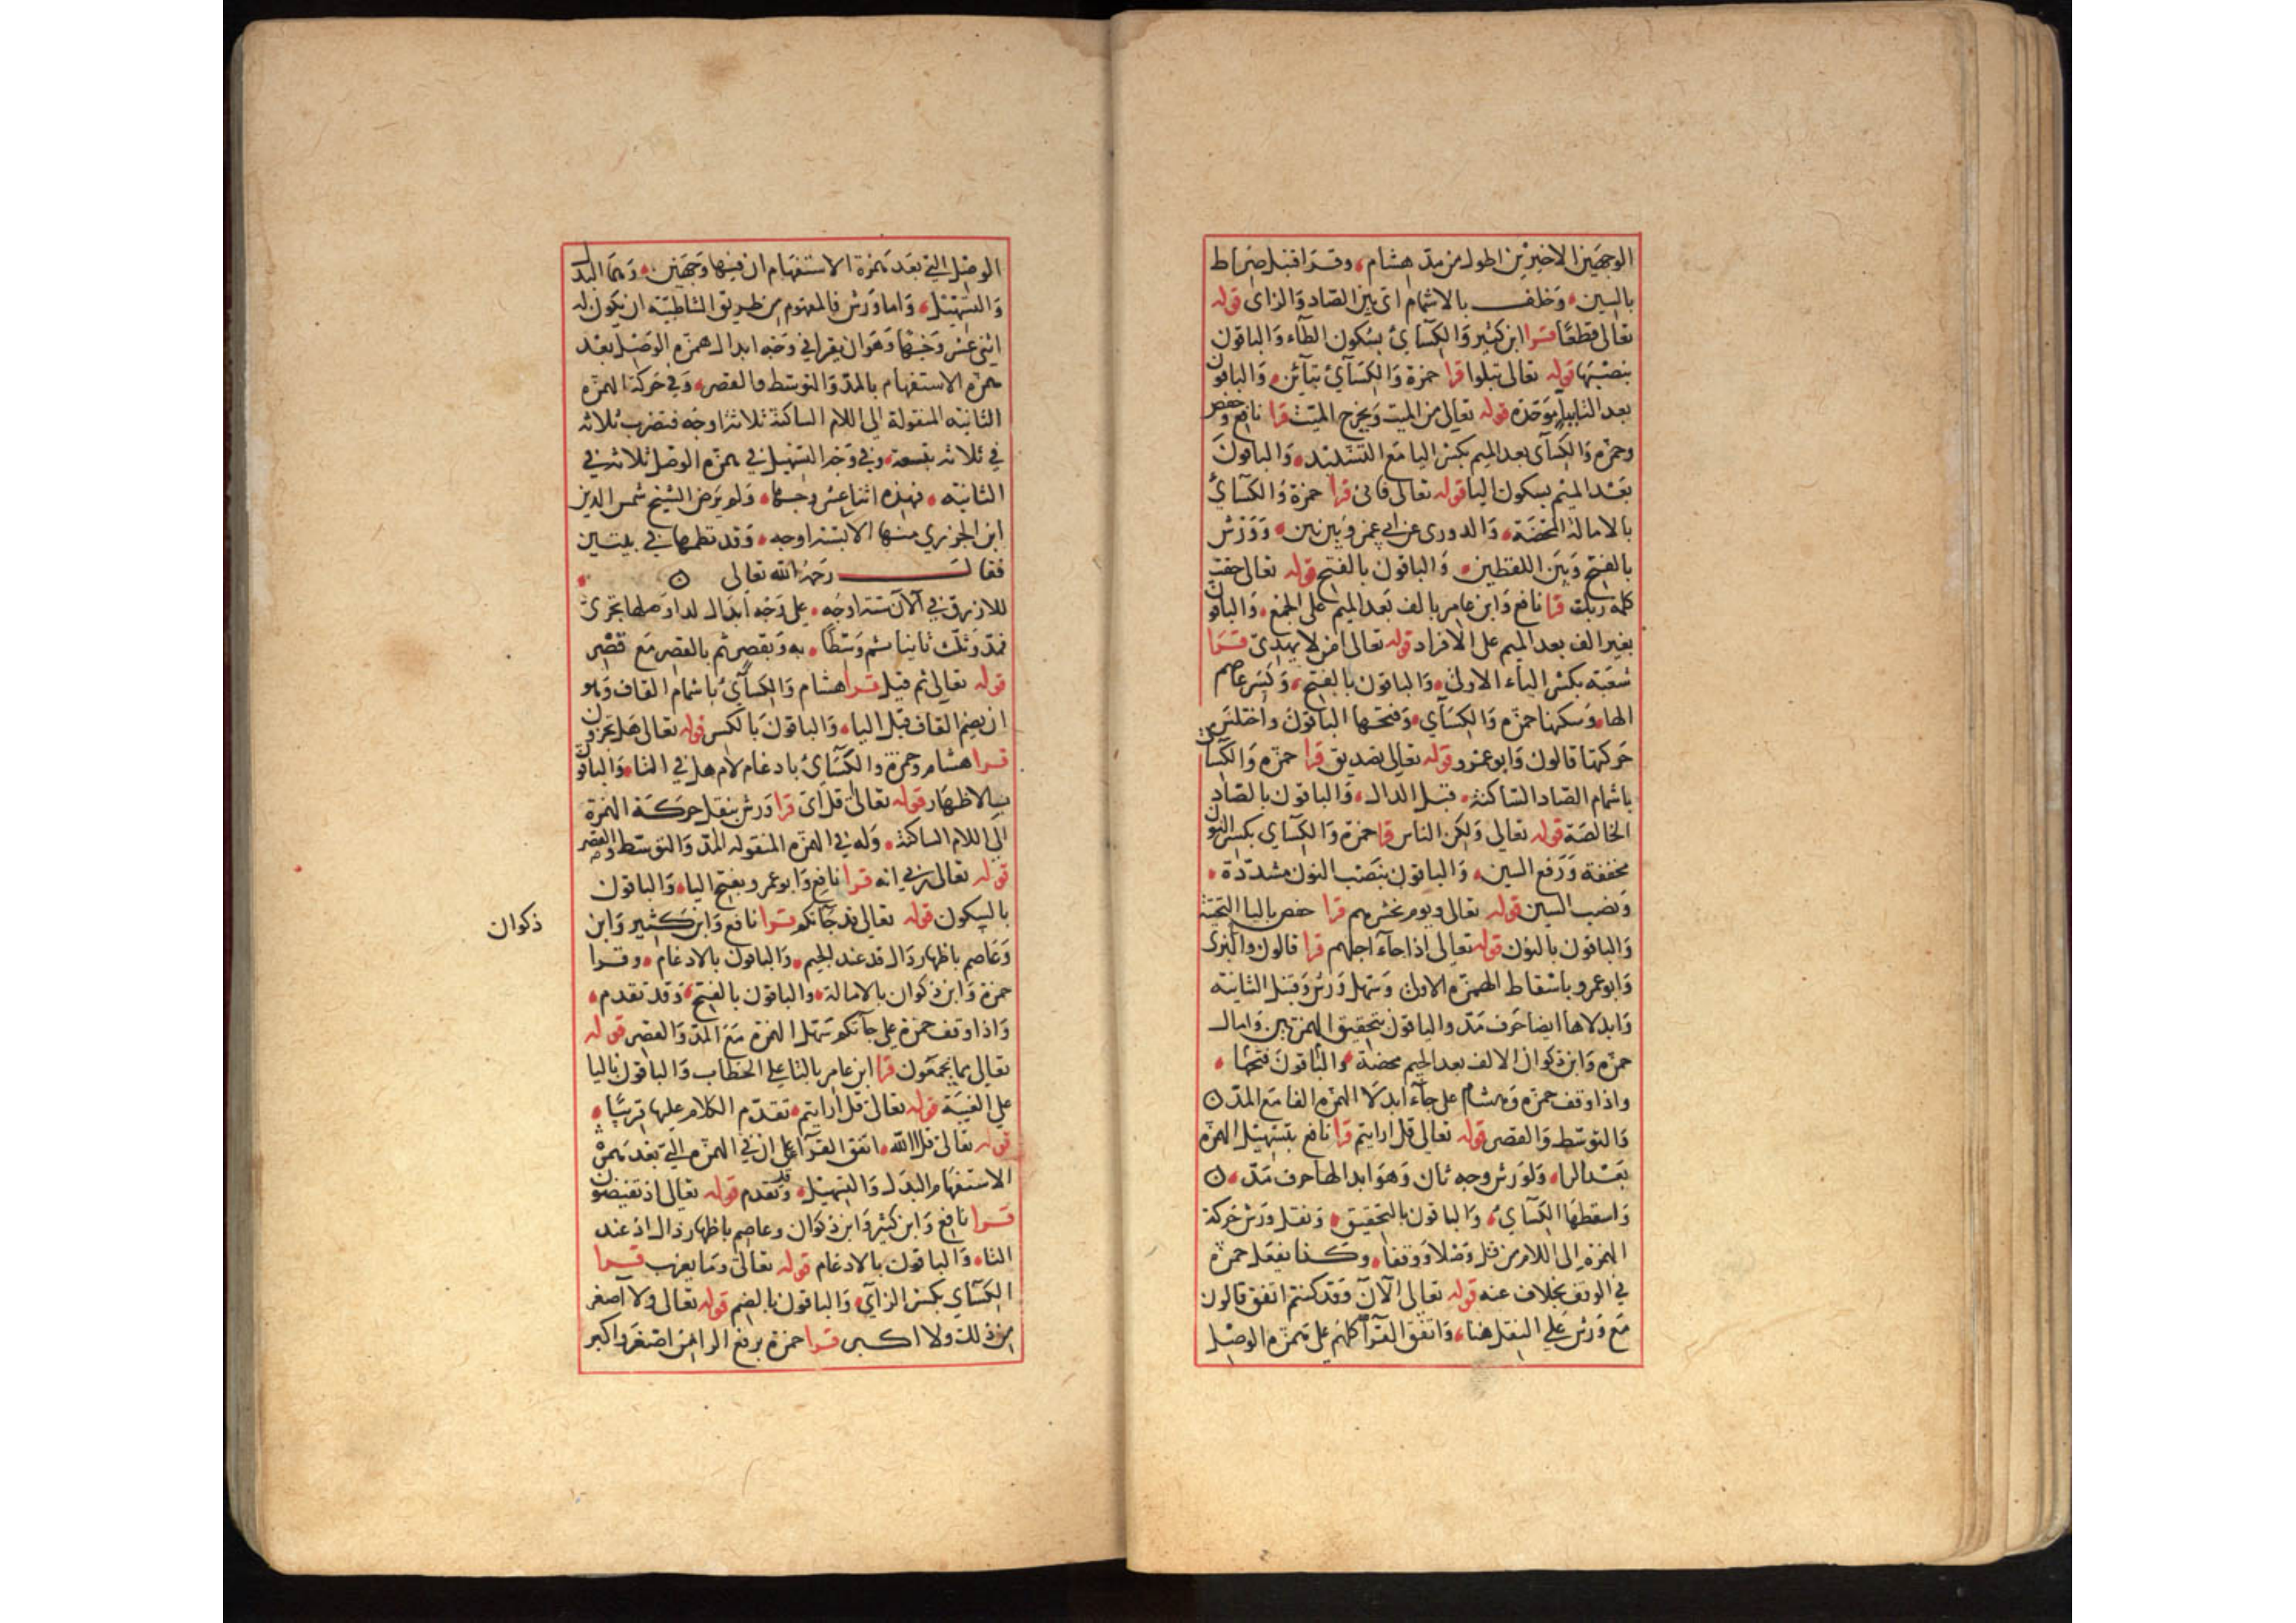 الوجهين الاخيرين اطول من مد هشام وقرا قنبل صراط
بالسين وخلف بالاشمام اى بين الصاد والزاى قوله
تعالى قطعا قرا ابن كثير والكسآئ بسكون الطآء والباقون
بنصبها قوله تعالى تبلوا قرا حمزة والكسآئ بتآئن والباقون
بعد التا ببا موحده قوله تعالى من الميت ويخرج الميت قرا نافع وحفص
وحمزه والكسآى بعد الميم بكسر اليا مع التشديد والباقون
بعد الميم بسكون اليا قوله تعالى فانى قرا حمزة والكسآئ
بالامالة المحضة والدورى عن ابي عمرو بين بين وورش
بالفتح وبين اللفظين والباقون بالفتح قوله تعالى حقت
كلمه ربك قرا نافع وابن عامر بالف بعد الميم على الجمع والباقون
بغير الف بعد الميم على الافراد قوله تعالى امن لا يهدى قرا
شعبة بكسر الياء الاولى والباقون بالفتح وكسر عاصم
الها وسكنها حمزه والكسآي وفتحها الباقون واختلس
حركتها قالون وابو عمرو قوله تعالى تصديق قرا حمزه والكسآى
باشمام الصاد الساكنة قبل الدال والباقون بالصاد
الخالصة قوله تعالى ولكن الناس قرا حمزة والكسآي بكسر النون
مخففة ورفع السين والباقون بنصب النون مشددة
ونصب السين قوله تعالى ويوم نحشرهم قرا حفص باليا التحتية
والباقون بالنون قوله تعالى اذا جآء اجلهم قرا قالون والبزى
وابو عمرو باسقاط الهمزه الاولى وسهل ورش وقنبل الثانيه
وابدلاها ايضا حرف مد والباقون بتحقيق الهمزتين وامال
حمزه وابن ذكوان الالف بعد الجيم محضة والباقون فتحها
واذا وقف حمزه وهشام على جآء ابدلا الهمزه الفا مع المد
والتوسط والقصر قوله تعالى قل ارايتم قرا نافع بتسهيل الهمزه
بعد الرا ولورش وجه ثان وهو ابدالها حرف مد
واسقطها الكسآئ والباقون بالتحقيق ونقل ورش حركة
الهمزه الى اللام من قل وصلا ووقفا وكذا يفعل حمزه
في الوقف بخلاف عنه قوله تعالى الآن وقد كنتم اتفق قالون
مع ورش على النقل هنا واتفق القرآ كلهم على همزه الوصل
الوصل التي بعد همزة الاستفهام ان فيها وجهين وهما البدل
والتسهيل واما ورش فالمفهوم من طريق الشاطبيه ان يكون له
اثنى عشر وجها وهو ان يقرا في وجه ابدال همزه الوصل بعد
همزه الاستفهام بالمد والتوسط والقصر وفي حركة الهمزه
الثانيه المنقولة الى اللام الساكنة ثلاثة اوجه فتضرب ثلاثه
في ثلاثه بتسعة وفي وجه التسهيل في همزه الوصل ثلاثه في
الثانيه فهذه اثنا عشر وجها ولم يرض الشيخ شمس الدين
ابن الجزري منها الا بستة اوجه وقد نظمها في بيتين
فقال رحمه الله تعالى
للازرق في آلان ستة اوجه على وجه ابدال لدا وصلها تجرى
فمد وثلث ثانيا ثم وسطا به وبقصر ثم بالقصر مع قصر
قوله تعالى ثم قيل قرا هشام والكسآئ باشمام القاف وهو
ان يضم القاف قبل اليا والباقون بالكسر قوله تعالى هل تجزون
قرا هشام وحمزة والكسآئ بادغام لام هل في التا والباقون
بالاظهار قوله تعالى قل اى قرا ورش بنقل حركة الهمزة
الى اللام الساكنة وله في الهمزه المنقوله المد والتوسط والقصر
قوله تعالى ربي انه قرا نافع وابو عمرو بفتح اليا والباقون
بالسكون قوله تعالى قد جآتكم قرا نافع وابن كثير وابن
ذكوان
وعاصم باظهار دال قد عند الجيم والباقون بالادغام وقرا
حمزة وابن ذكوان بالامالة والباقون بالفتح وقد تقدم
واذا وقف حمزه على جآتكم سهل الهمزه مع المد والقصر قوله
تعالى مما يجمعون قرا ابن عامر بالتا على الخطاب والباقون باليا
على الغيبة قوله تعالى قل ارايتم تقدم الكلام عليها قريبا
قوله تعالى قل الله اتفق القرآ على ان في الهمزه التي بعد همزه
الاستفهام البدل والتسهيل وقد تقدم قوله تعالى اذ تفيضون
قرا نافع وابن كثير وابن ذكوان وعاصم باظهار ذال اذ عند
التاء والباقون بالادغام قوله تعالى وما يعزب قرا
الكسآي بكسر الزآي والباقون بالضم قوله تعالى ولا اصغر
من ذلك ولا اكبر قرا حمزة برفع الرا من اصغر واكبر